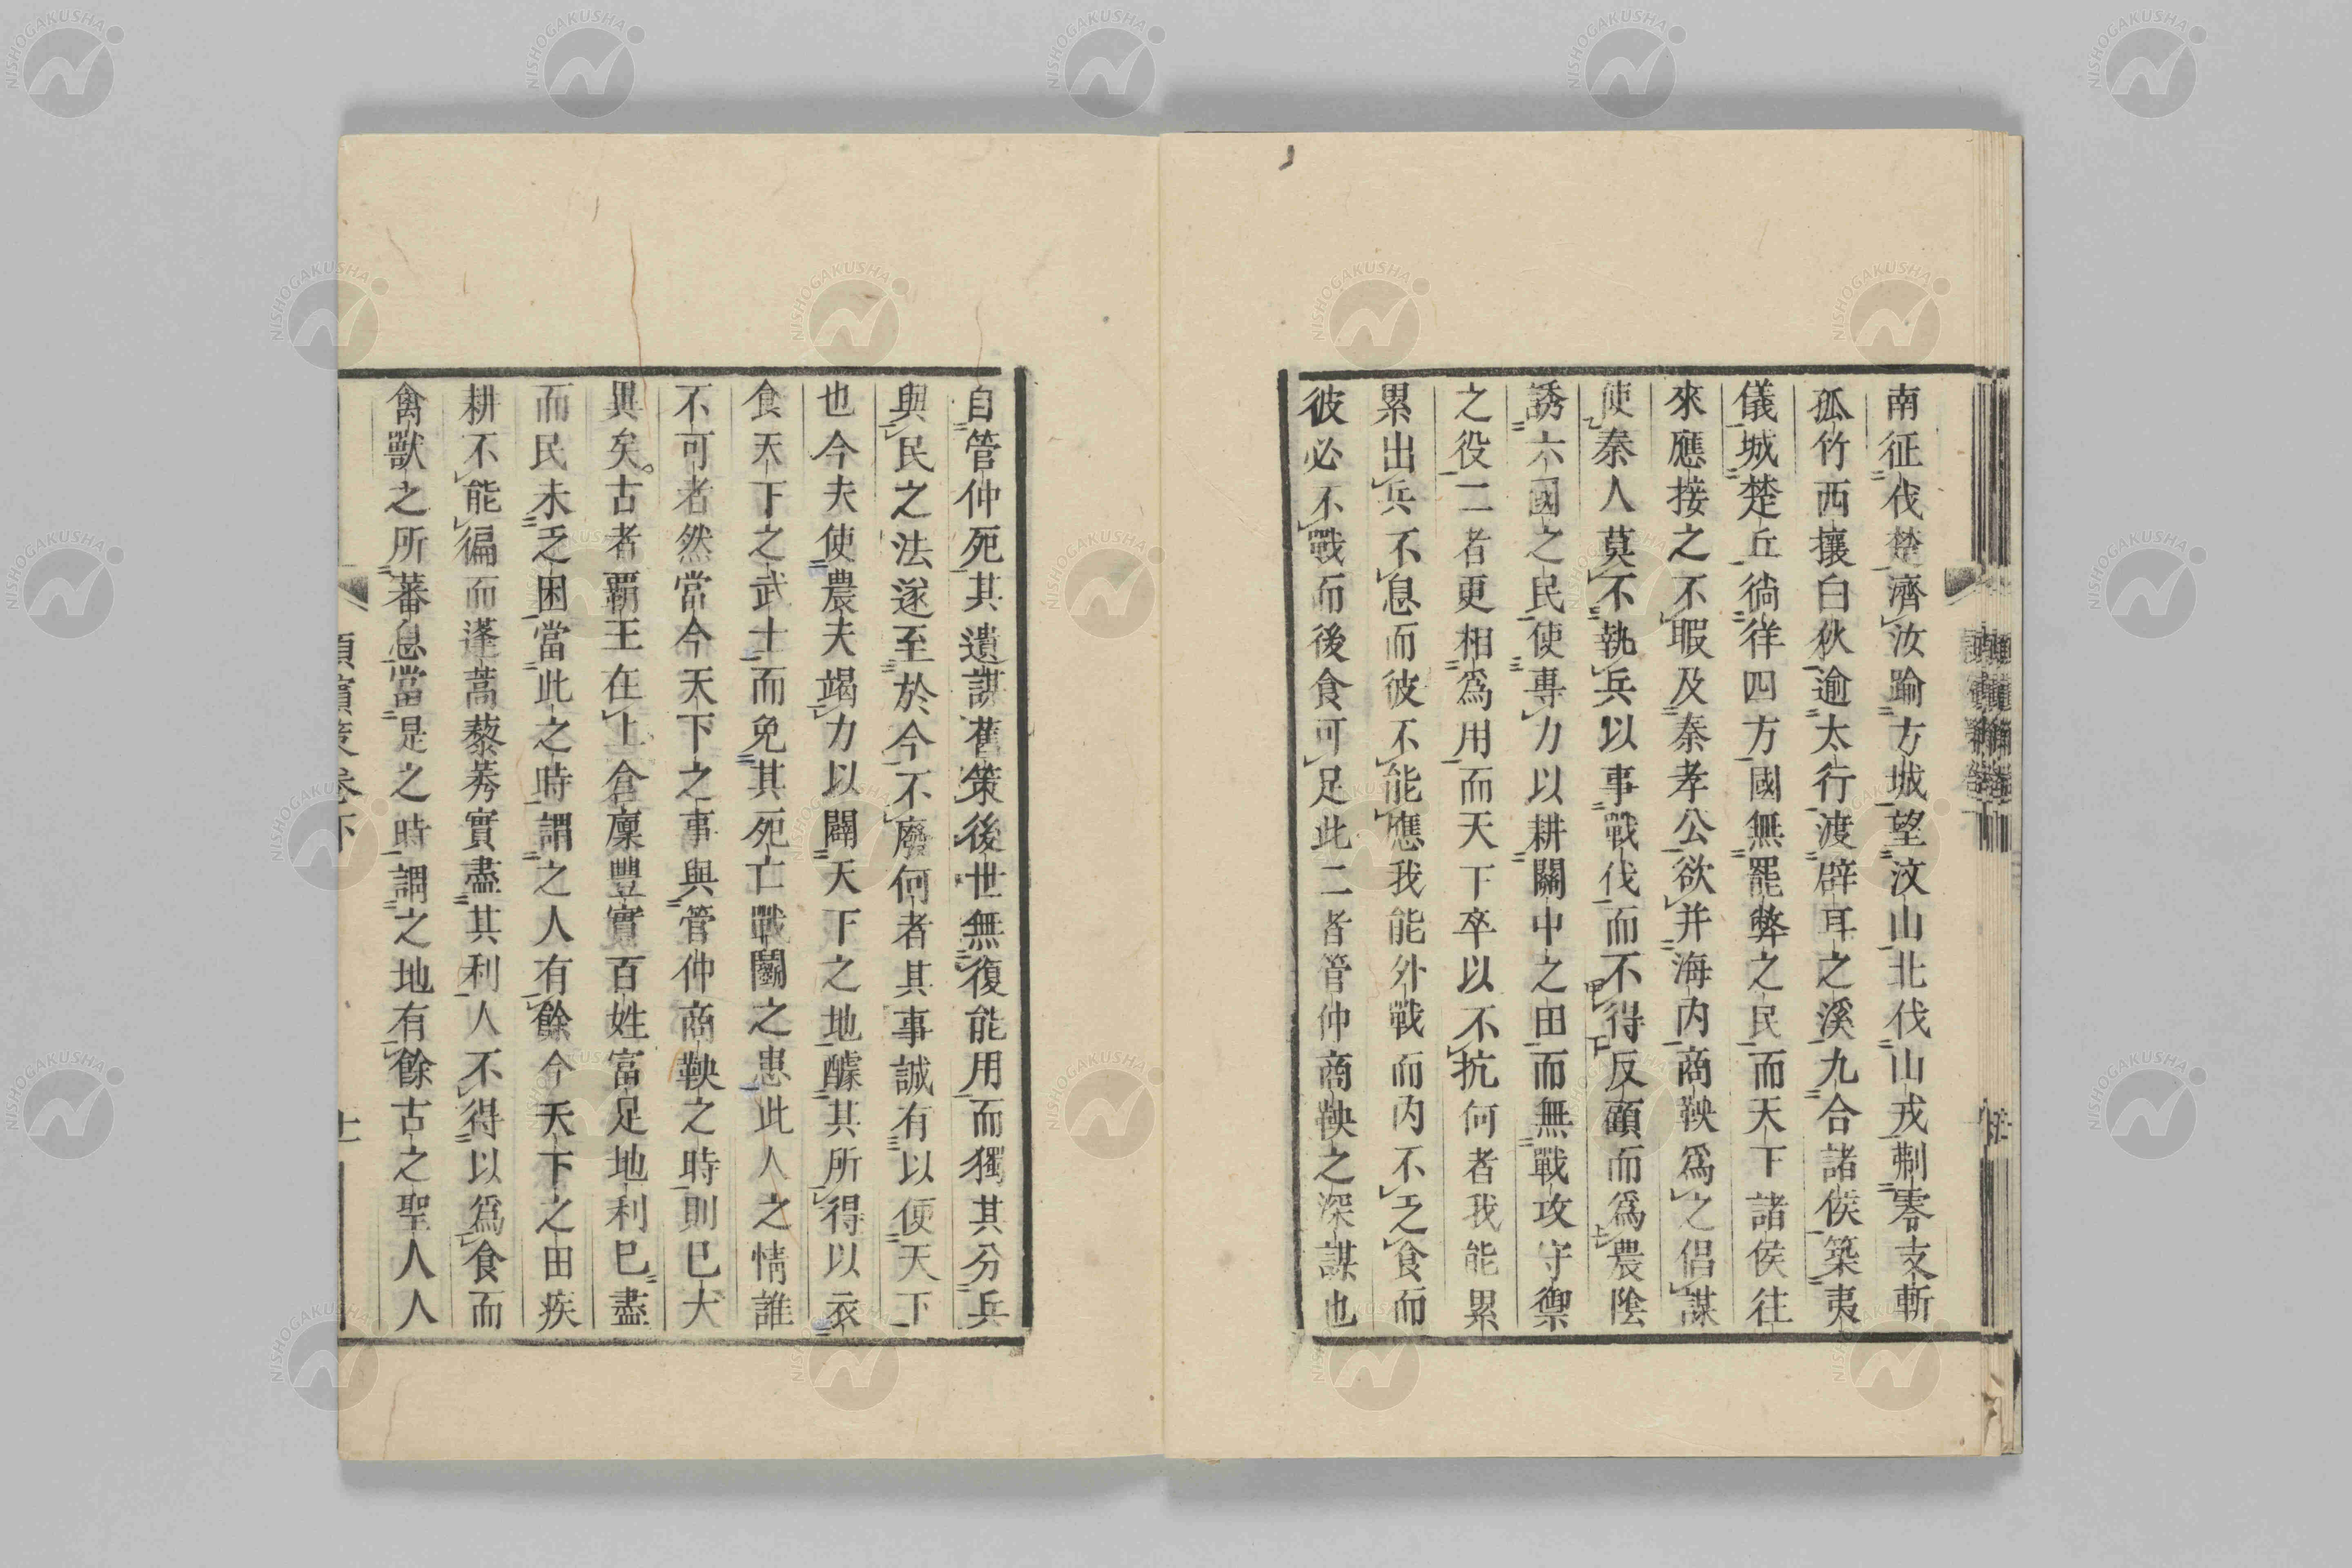 南征伐楚濟汝踰方城望汶山北伐山戎制零支斬
孤竹西攘白狄逾太行渡辟耳之溪九合諸侯築夷
儀城楚丘徜徉四方國無罷弊之民而天下諸侯往
來應接之不暇及秦孝公欲并海内商鞅爲之倡謀
使秦人莫不執兵以事戰伐而不得反顧而爲農陰
誘六國之民使專力以耕關中之田而無戰攻守禦
之役二者更相爲用而天下卒以不抗何者我能累
累出兵不息而彼不能應我能外戰而内不乏食而
彼必不戰而後食可足此二者管仲商鞅之深謀也
自管仲死其遺謀舊策後世無復能用而獨其分兵
與民之法遂至於今不廢何者其事誠有以便天下
也今夫使農夫竭力以闢天下之地醵其所得以衣
食天下之武士而免其死亡戰鬭之患此人之情誰
不可者然當今天下之事與管仲商鞅之時則已大
異矣古者覇王在上倉廩豐實百姓富足地利已盡
而民未乏困當此之時謂之人有餘今天下之田疾
耕不能徧而蓬蒿藜莠實盡其利人不得以爲食而
禽獸之所蕃息當是之時謂之地有餘古之聖人人
頴濱策卷下
十
NISHOGAKUSHA